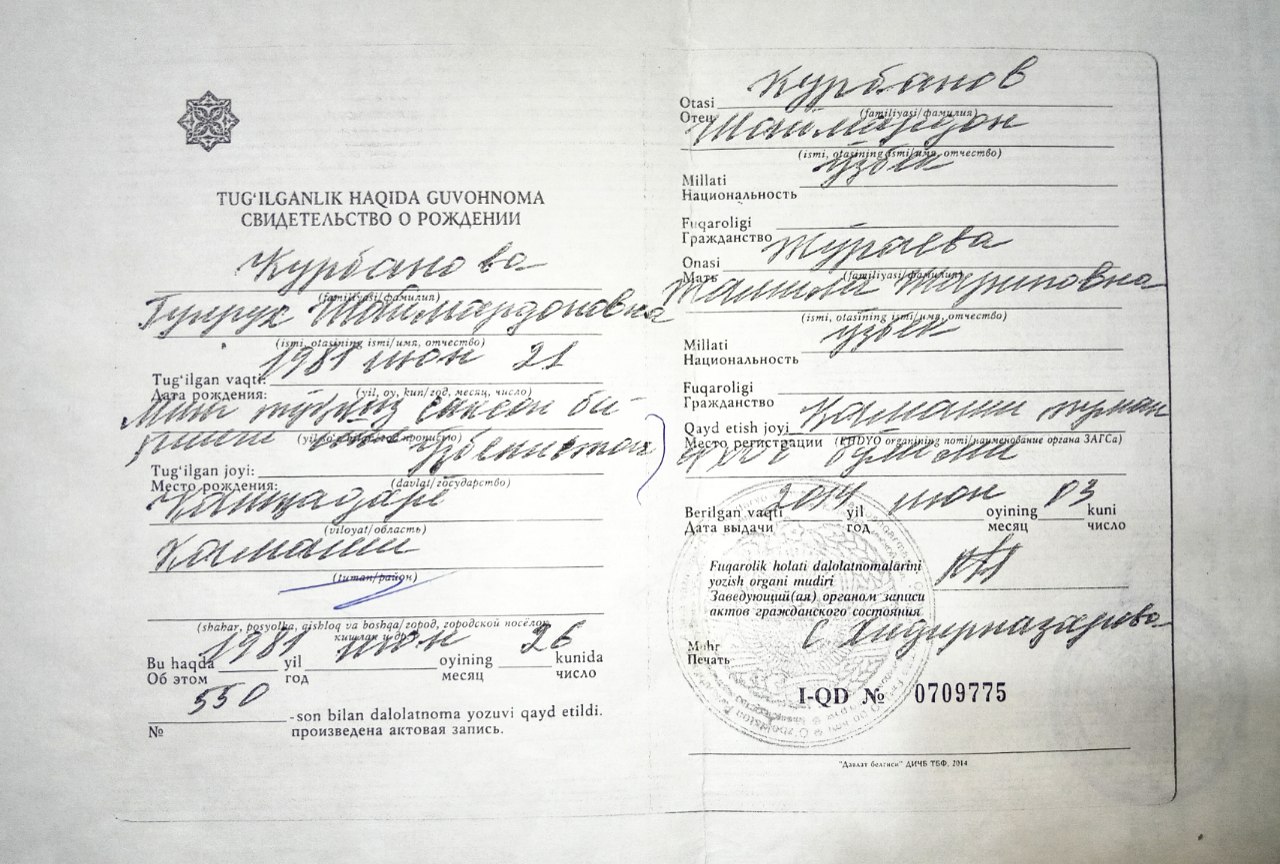 TUG‘ILGANLIK HAQIDA GUVOHNOMA
СВИДЕТЕЛЬСТВО О РОЖДЕНИИ
Курбанова
(familiyasi/фамилия)
Гулрух Шаймардоновна
(ismi, otasining ismi/имя, отчество)
1981 июн 21
Tug‘ilgan vaqti:
Дата рождения:
(yil, oy, kun/год, месяц, число)
Минг тўққиз саксон би-
Ўзбекистон
Tug‘ilgan joyi:
Место рождения:
(davlat/государство)
Қашқадарё
(viloyat/область)
Камаши
(tuman/район)
(shahar, posyolka, qishloq va boshqa/город, городской посёлок,
кишлак и др.)
1981 июн 26
Bu haqda yil oyining kunida
Об этом год месяц число
550
-son bilan dalolatnoma yozuvi qayd etildi.
№ произведена актовая запись.
Курбанов
Otasi
Отец
(familiyasi/фамилия)
Шаймардон
(ismi, otasining ismi/имя, отчество)
ўзбек
Millati
Национальность
Fuqaroligi
Гражданство
Жўраева
Onasi
Мать
(familiyasi/фамилия)
(ismi, otasining ismi/имя, отчество)
ўзбек
Millati
Национальность
Fuqaroligi
Гражданство
Камаши туман
Qayd etish joyi
Место регистрации (FHDYO organining nomi/наименование органа ЗАГСа)
ФХДЁ бўлими
2014 июн 03
Berilgan vaqti yil oyining kuni
Дата выдачи год месяц число
Fuqarolik holati dalolatnomalarini
yozish organi mudiri
Заведующий(ая) органом записи
актов гражданского состояния
С Хидирназарова
Mohr
Печать
I-QD № 0709775
"Давлат белгиси" ДИЧБ ТБФ. 2014